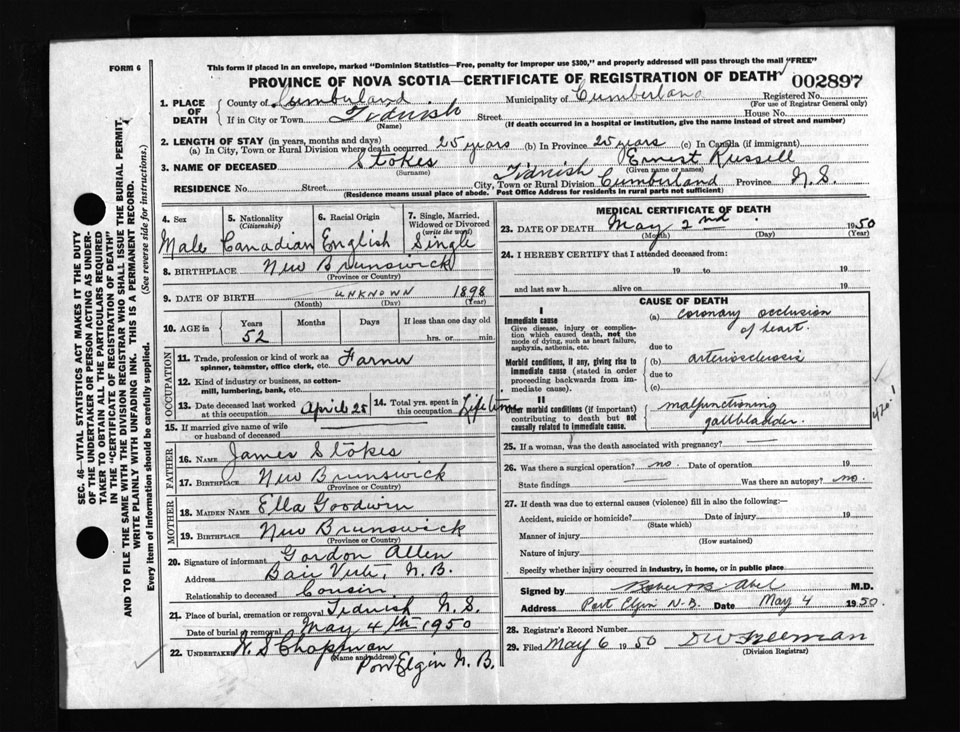 FORM 6
This form if placed in an envelope, marked "Dominion Statistics—Free, penalty for improper use $300," and properly addressed will pass through the mail "FREE"
PROVINCE OF NOVA SCOTIA—CERTIFICATE OF REGISTRATION OF DEATH 002897
1. PLACE OF DEATH County of Cumberland Municipality of Cumberland Registered No.
(For use of Registrar General only)
If in City or Town Tidnish Street House No.
(Name) (If death occurred in a hospital or institution, give the name instead of street and number)
2. LENGTH OF STAY (in years, months and days)
(a) In City, Town or Rural Division where death occurred 25 years (b) In Province 25 years (c) In Canada (if immigrant)
3. NAME OF DECEASED Stokes Ernest Russell
(Surname) (Given name or names)
RESIDENCE No. Street City, Town or Rural Division Tidnish Cumberland Province N.S.
(Residence means usual place of abode. Post Office Address for residents in rural parts not sufficient)
4. Sex Male
5. Nationality (Citizenship) Canadian
6. Racial Origin English
7. Single, Married, Widowed or Divorced (write the word) Single
8. BIRTHPLACE New Brunswick
(Province or Country)
9. DATE OF BIRTH UNKNOWN 1898
(Month) (Day) (Year)
10. AGE in Years Months Days If less than one day old
52 hrs. or min.
OCCUPATION
11. Trade, profession or kind of work as spinner, teamster, office clerk, etc. Farmer
12. Kind of industry or business, as cotton-mill, lumbering, bank, etc.
13. Date deceased last worked at this occupation April 28
14. Total yrs. spent in this occupation Lifetime
15. If married give name of wife or husband of deceased
FATHER
16. NAME James Stokes
17. BIRTHPLACE New Brunswick
(Province or Country)
MOTHER
18. MAIDEN NAME Ella Goodwin
19. BIRTHPLACE New Brunswick
(Province or Country)
20. Signature of informant Gordon Allen
Address Baie Verte, N.B.
Relationship to deceased Cousin
21. Place of burial, cremation or removal Tidnish N.S.
Date of burial or removal May 4th 1950
22. UNDERTAKER N.S. Chapman
(Name and address) Port Elgin N.B.
MEDICAL CERTIFICATE OF DEATH
23. DATE OF DEATH May 2nd 1950
(Month) (Day) (Year)
24. I HEREBY CERTIFY that I attended deceased from:
19 to 19
and last saw h alive on 19
CAUSE OF DEATH
I
Immediate cause
Give disease, injury or complication which caused death, not the mode of dying, such as heart failure, asphyxia, asthenia, etc.
(a) coronary occlusion of heart.
due to
Morbid conditions, if any, giving rise to immediate cause (stated in order proceeding backwards from immediate cause).
(b) arteriosclerosis
due to
(c)
II
Other morbid conditions (if important) contributing to death but not causally related to immediate cause.
malfunctioning gallbladder.
420.1
25. If a woman, was the death associated with pregnancy?
26. Was there a surgical operation? no. Date of operation 19
State findings Was there an autopsy? no.
27. If death was due to external causes (violence) fill in also the following:—
Accident, suicide or homicide? Date of injury 19
(State which)
Manner of injury
(How sustained)
Nature of injury
Specify whether injury occurred in industry, in home, or in public place
Signed by Abel M.D.
Address Port Elgin N.B. Date May 4 1950.
28. Registrar's Record Number
29. Filed May 6 1950 Freeman
(Division Registrar)
SEC. 46—VITAL STATISTICS ACT MAKES IT THE DUTY
OF THE UNDERTAKER OR PERSON ACTING AS UNDER-
TAKER TO OBTAIN ALL THE PARTICULARS REQUIRED
IN THE "CERTIFICATE OF REGISTRATION OF DEATH"
AND TO FILE THE SAME WITH THE DIVISION REGISTRAR WHO SHALL ISSUE THE BURIAL PERMIT.
WRITE PLAINLY WITH UNFADING INK. THIS IS A PERMANENT RECORD.
Every item of information should be carefully supplied. (See reverse side for instructions.)